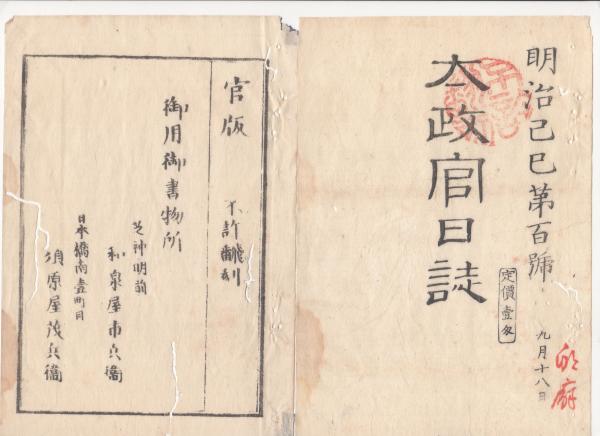 明治己巳第百號
太政官日誌
定價壹匁
九月十八日
官版
不許翻刻
御用御書物所
芝神明前
和泉屋市兵衞
日本橋南壹町目
須原屋茂兵衞